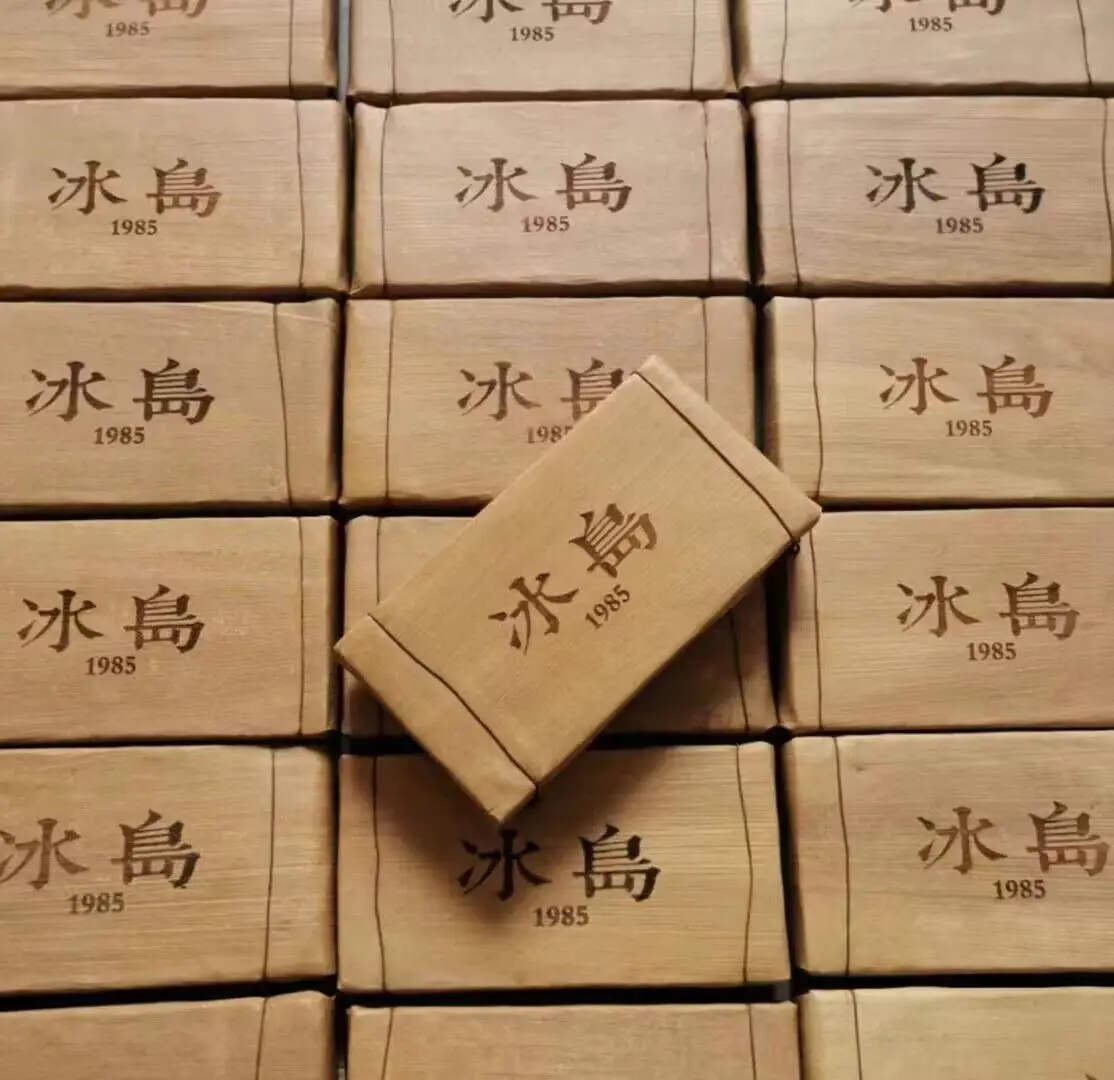 1985
1985
1985
冰島
1985
冰島
1985
冰島
1985
冰島
1985
冰島
198
冰島
1985
冰島
1985
冰島
1985
冰島
1985
冰島
1985
冰島
1985
冰島
1985